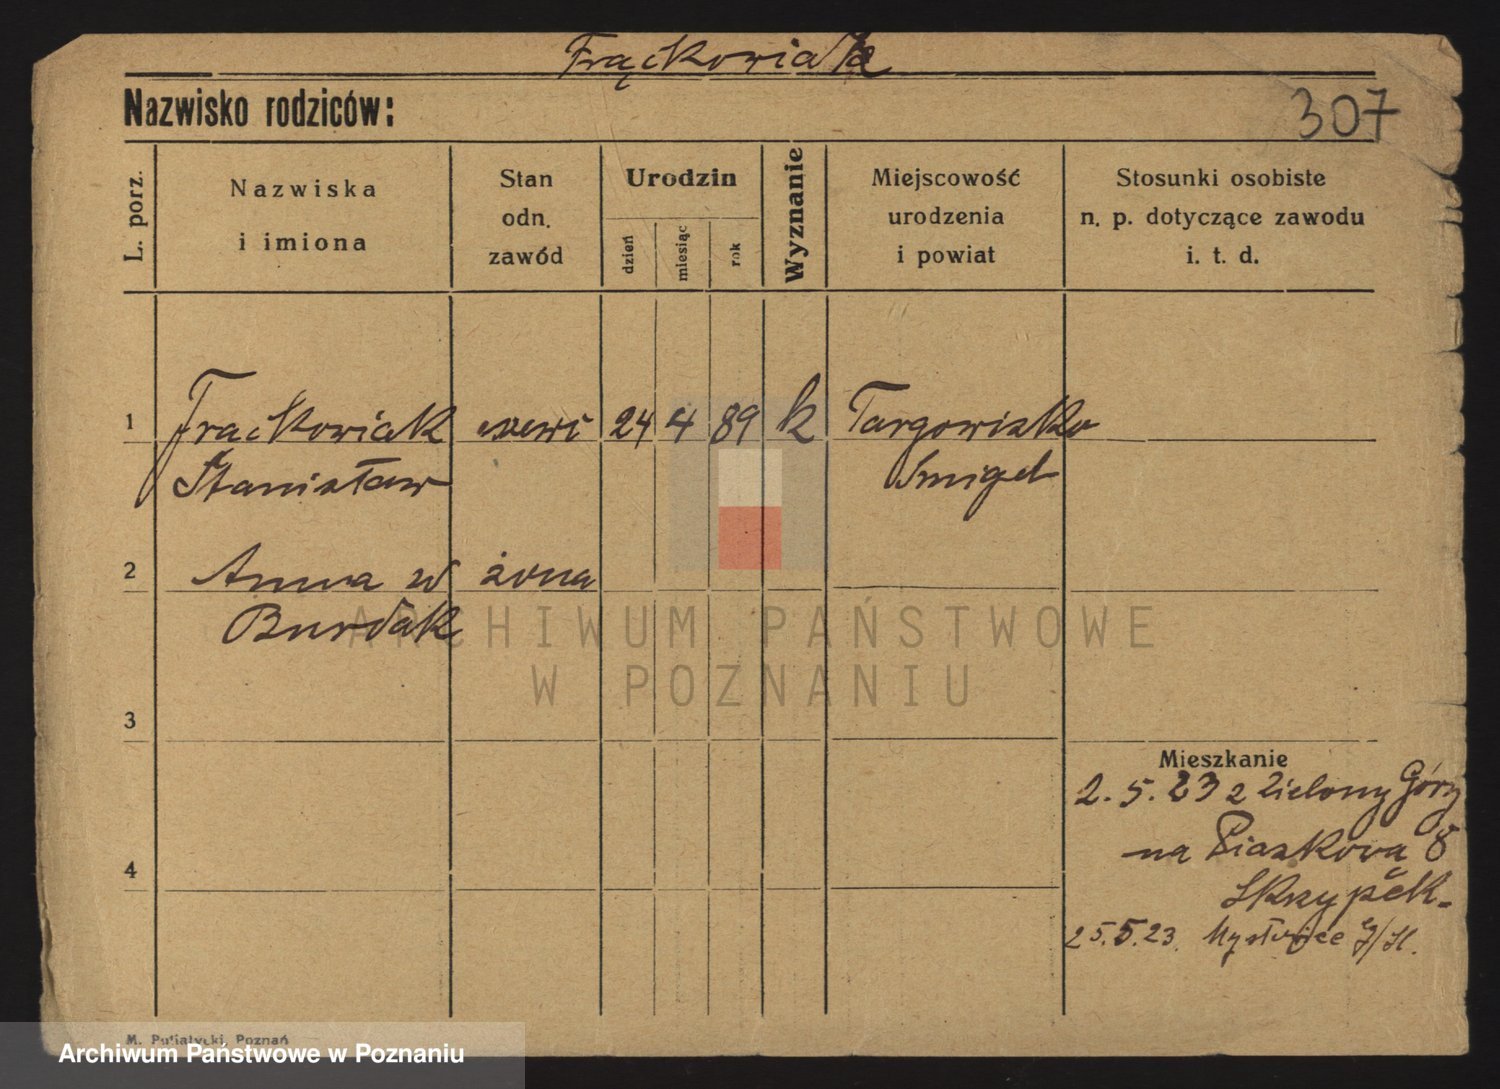 Frąckowiak
Nazwisko rodziców:
307
L. porz.
Nazwiska
i imiona
Stan
odn.
zawód
Urodzin
dzień
miesiąc
rok
Wyznanie
Miejscowość
urodzenia
i powiat
Stosunki osobiste
n. p. dotyczące zawodu
i. t. d.
1 Frackowiak szewc 24 4 89 k Targowisko
Stanisław Smigel
2 Anna w żona
Burdak
3
Mieszkanie
2.5.23 z Zielony Góry
na Piaskowa 8
4
Skrzypek.
25.5.23. Mysłowice
M. Putiatycki, Poznań
ARCHIWUM PAŃSTWOWE
W POZNANIU
Archiwum Państwowe w Poznaniu